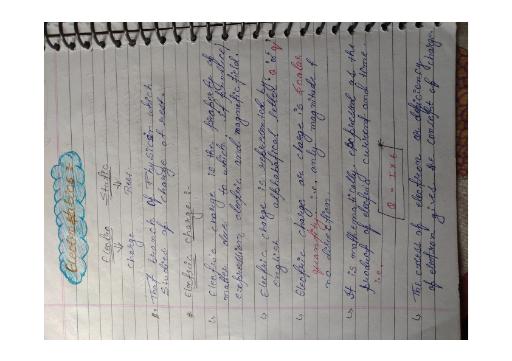 Electrostatics :-
Electro Static
↓ ↓
charge rest
That branch of Physics which
studies of charge at rest.
* Electric charge :
↳ Electric charge is the property of
matter due to which it produces
experiences electric and magnetic field.
↳ Electric charge is represented by
english alphabetical letter 'Q' or 'q'
↳ Electric charge or charge is scalar
quantity i.e. only magnitude &
no direction.
↳ It is mathematically expressed as the
product of electric current and time
i.e.
Q = I x t
↳ The excess of electron or deficiency
of electron gives the concept of charge.